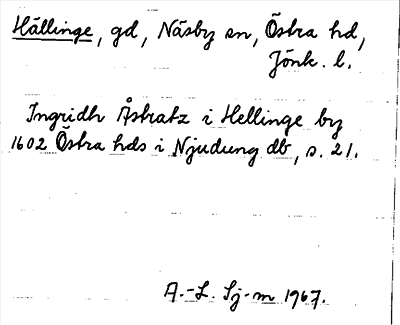 Hällinge, gd, Näsby sn, Östra hd,
Jönk. l.
Ingridh Åstratz i Hellinge by
1602 Östra hds i Njudung db, s. 21.
A.-L. Sj-m 1967.